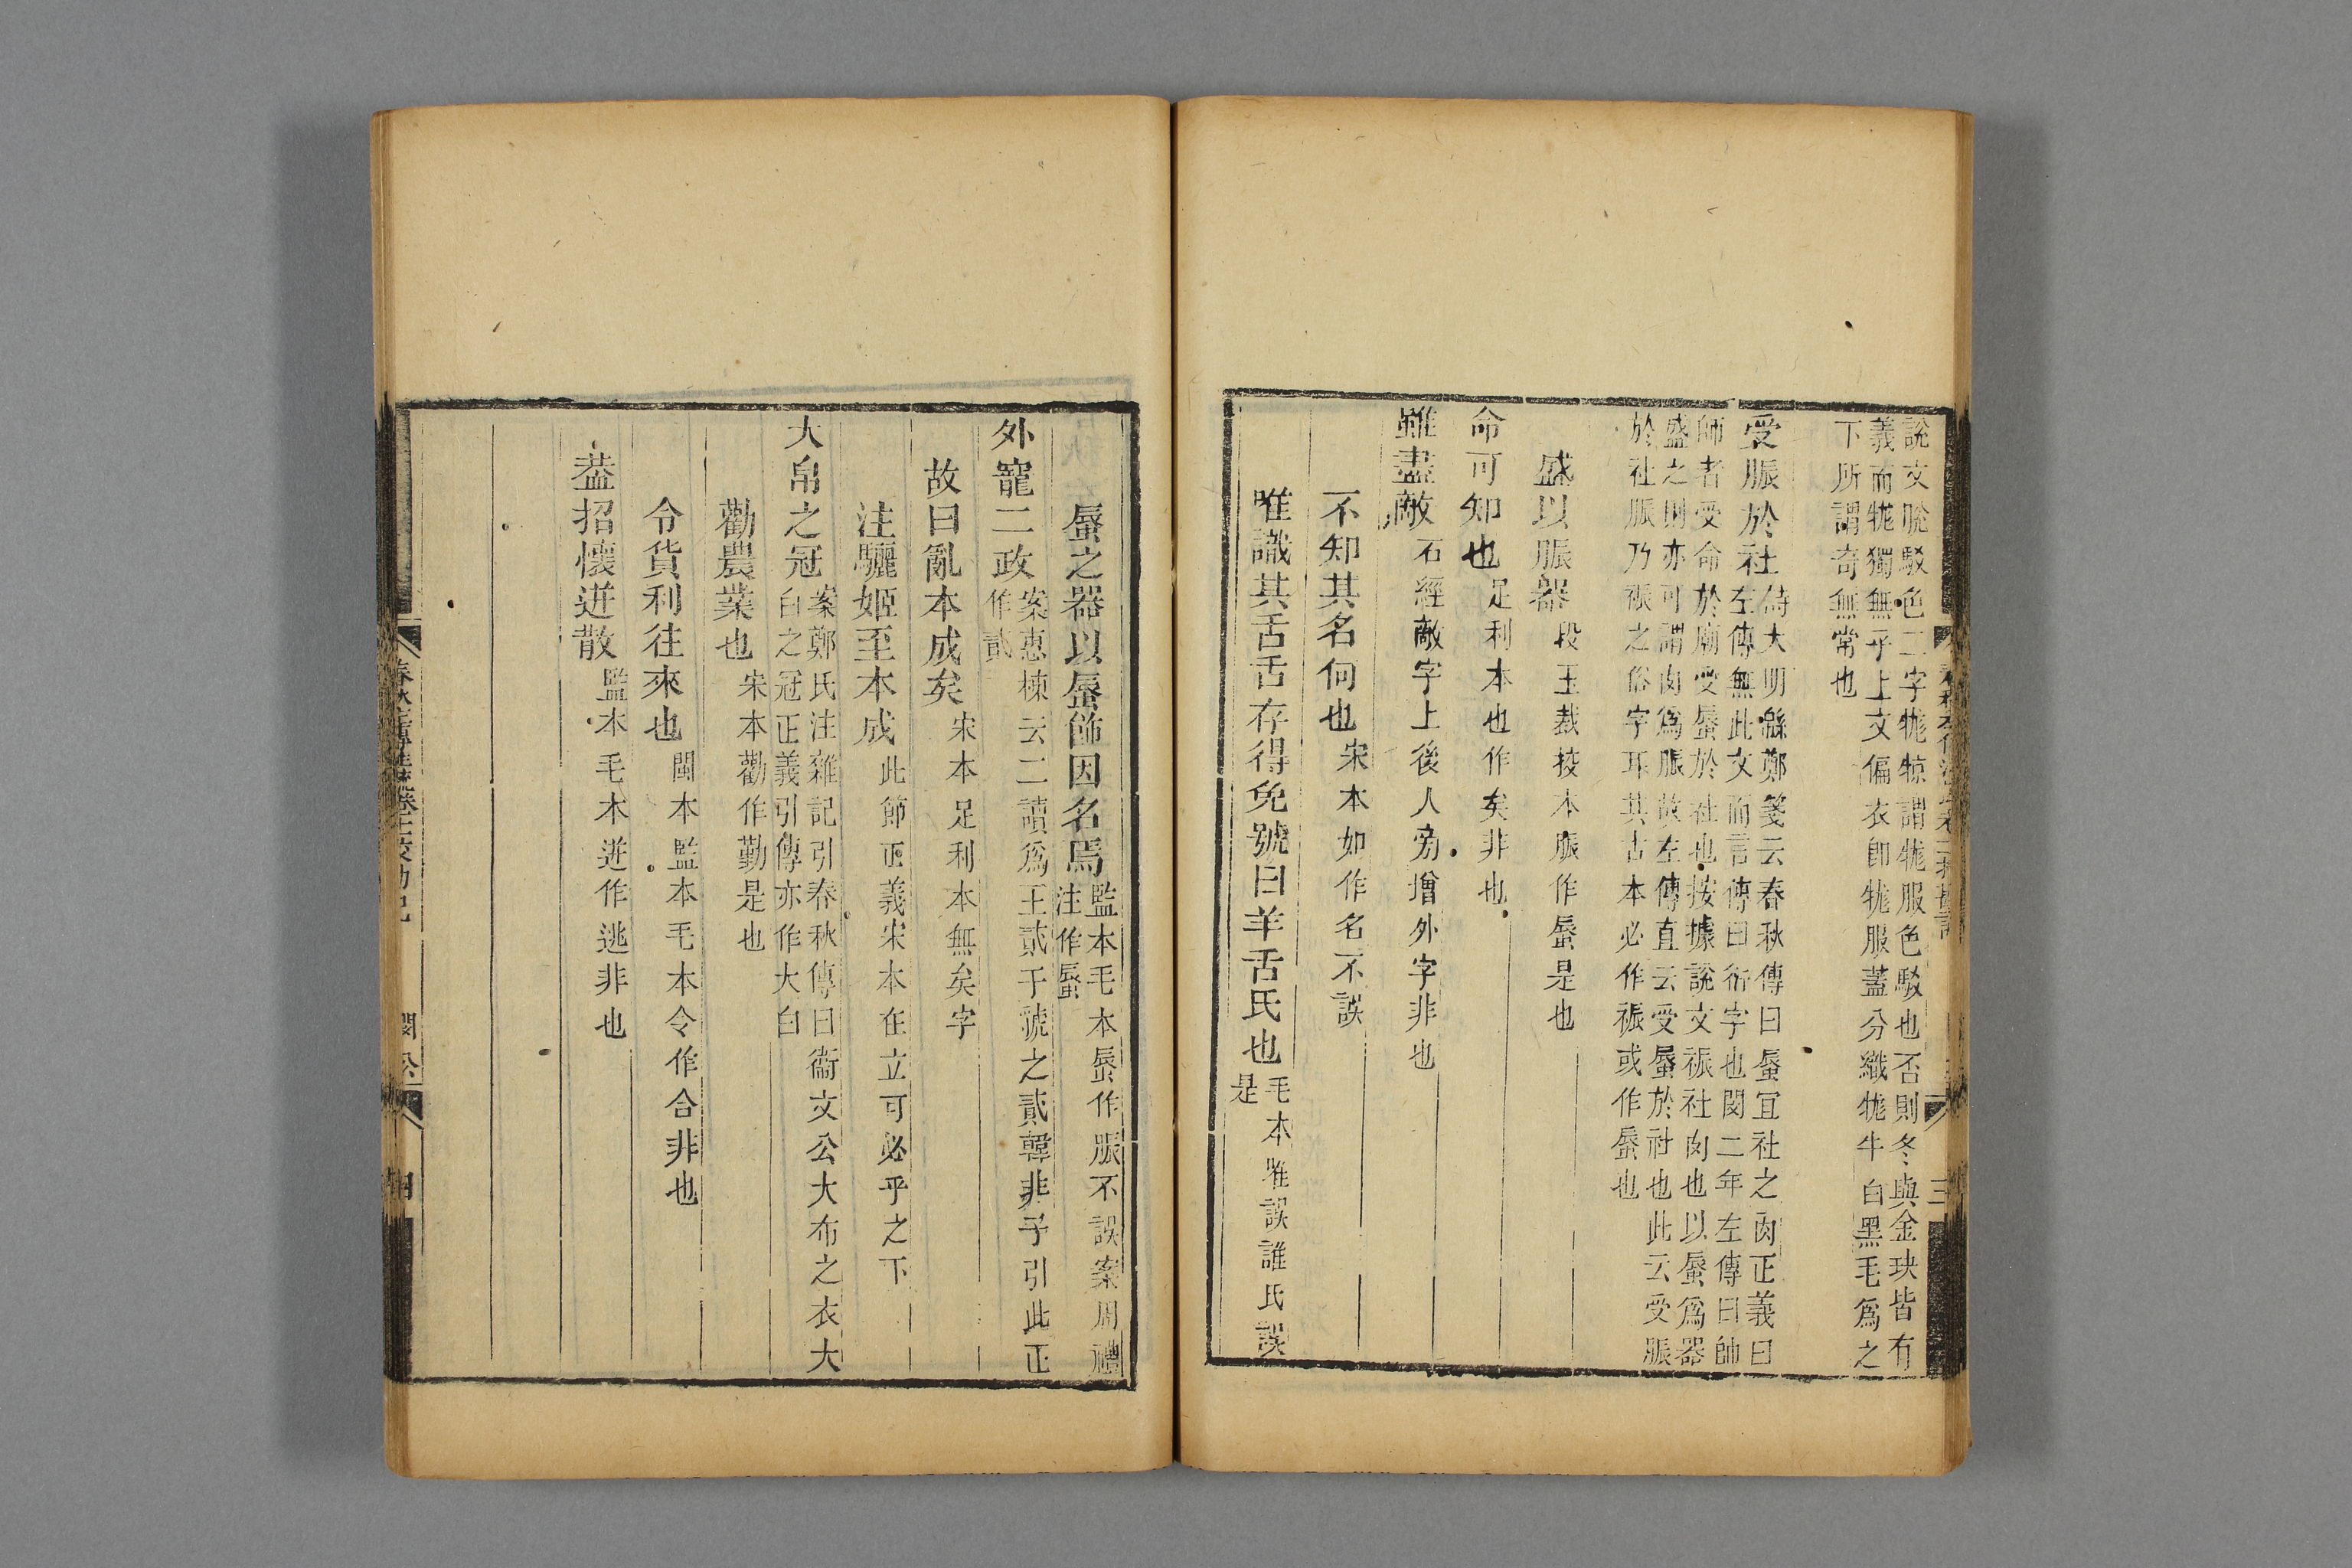 說文㹁駁色二字牻㹁謂牻服色駁也否則冬與金玦皆有
義而牻獨無乎上文偏衣卽牻服蓋分織牻牛白黑毛爲之
下所謂奇無常也
受脤於社詩大明緜鄭箋云春秋傳曰蜃宜社之肉正義曰
左傳無此文而言傳曰衍字也閔二年左傳曰帥
師者受命於廟受蜃於社也按據說文祳社肉也以蜃爲器
盛之則亦可謂肉爲脤故左傳直云受蜃於社也此云受脤
於社脤乃祳之俗字耳其古本必作祳或作蜃也
盛以脤器段玉裁挍本脤作蜃是也
命可知也足利本也作矣非也
雖盡敵石經敵字上後人旁增外字非也
不知其名何也宋本如作名不誤
唯識其舌舌存得免號曰羊舌氏也毛本唯誤誰氏誤
是
蜃之器以蜃飾因名焉監本毛本蜃作脤不誤案周禮
注作蜃
外寵二政案惠棟云二讀爲王貳于虢之貳韓非子引此正
作貳
故曰亂本成矣宋本足利本無矣字
注驪姬至本成此節正義宋本在立可必乎之下
大帛之冠案鄭氏注雜記引春秋傳曰衞文公大布之衣大
白之冠正義引傳亦作大白
勸農業也宋本勸作勤是也
令貨利往來也閩本監本毛本令作合非也
葢招懷迸散監本毛本迸作逃非也
春秋左傳注疏卷十一挍勘記 閔公 四